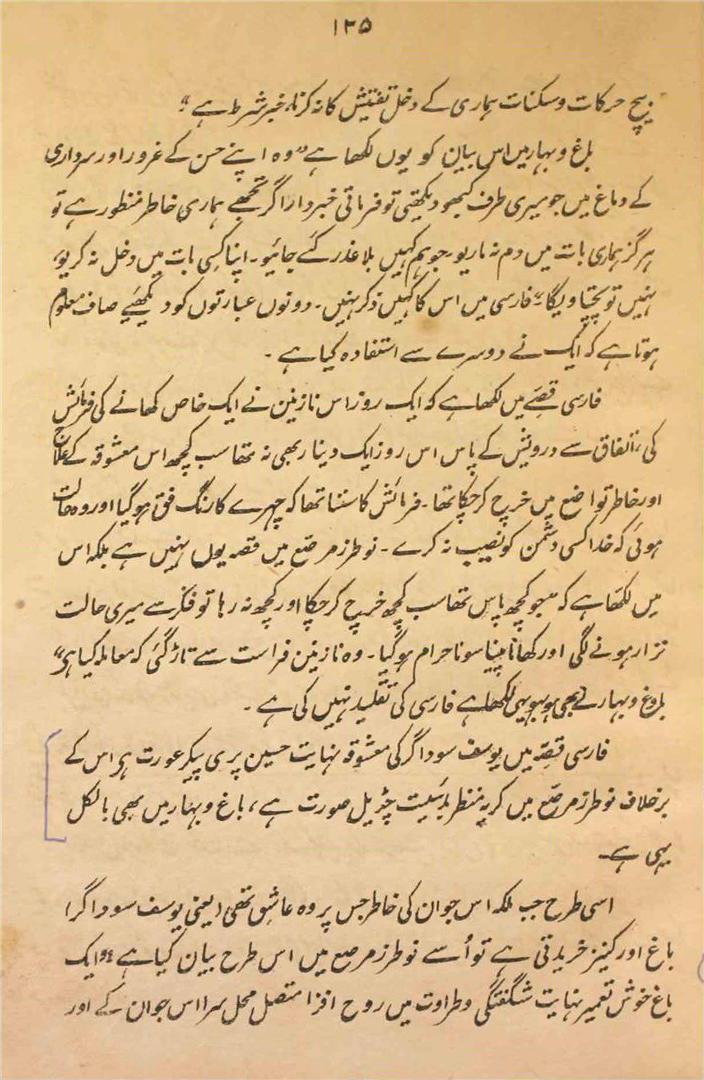 ۱۲۵
بیچ حرکات و سکنات ہماری کے دخل تفتیش کا نہ کرنا، خبر شرط ہے"
باغ و بہار میں اس بیان کو یوں لکھا ہے "وہ اپنے حسن کے غرور اور سرداری
کے دماغ میں جو میری طرف کبھو دیکھتی تو فرماتی خبردار! اگر تجھے ہماری خاطر منظور ہے تو
ہرگز ہماری بات میں دم نہ ماریو۔ جو ہم کہیں بلا عذر کئے جائیو۔ اپنا کسی بات میں دخل نہ کریو،
نہیں تو پچتاویگا" فارسی میں اس کا کہیں ذکر نہیں۔ دونوں عبارتوں کو دیکھیے صاف معلوم
ہوتا ہے کہ ایک نے دوسرے سے استفادہ کیا ہے۔
فارسی قصے میں لکھا ہے کہ ایک روز اس نازنین نے ایک خاص کھانے کی فرمائش
کی، اتفاق سے درویش کے پاس اس روز ایک دینار بھی نہ تھا سب کچھ اس معشوقہ کے علاج
اور خاطر تواضع میں خرچ کر چکا تھا۔ فرمائش کا سننا تھا کہ چہرے کا رنگ فق ہو گیا اور وہ حالت
ہوئی کہ خدا کسی دشمن کو نصیب نہ کرے۔ نو طرز مرصع میں قصہ یوں نہیں ہے بلکہ اس
میں لکھا ہے کہ "جو کچھ پاس تھا سب کچھ خرچ کر چکا اور کچھ نہ رہا تو فکر سے میری حالت
نزار ہونے لگی اور کھانا پینا سونا حرام ہو گیا۔ وہ نازنین فراست سے تاڑ گئی کہ معاملہ کیا ہے"
باغ و بہار نے بھی ہو بہو یہی لکھا ہے فارسی کی تقلید نہیں کی ہے۔
فارسی قصہ میں یوسف سوداگر کی معشوقہ نہایت حسین پری پیکر عورت ہے اس کے
برخلاف نو طرز مرصع میں کریہ منظر بد ہئیت چڑیل صورت ہے، باغ و بہار میں بھی بالکل
یہی ہے۔
اسی طرح جب ملکہ اس جوان کی خاطر جس پر وہ عاشق تھی (یعنی یوسف سوداگر)
باغ اور کنیز خریدتی ہے تو اُسے نو طرز مرصع میں اس طرح بیان کیا ہے "ایک
باغ خوش تعمیر نہایت شگفتگی و طراوت میں روح افزا متصل محل سرا اس جوان کے اور